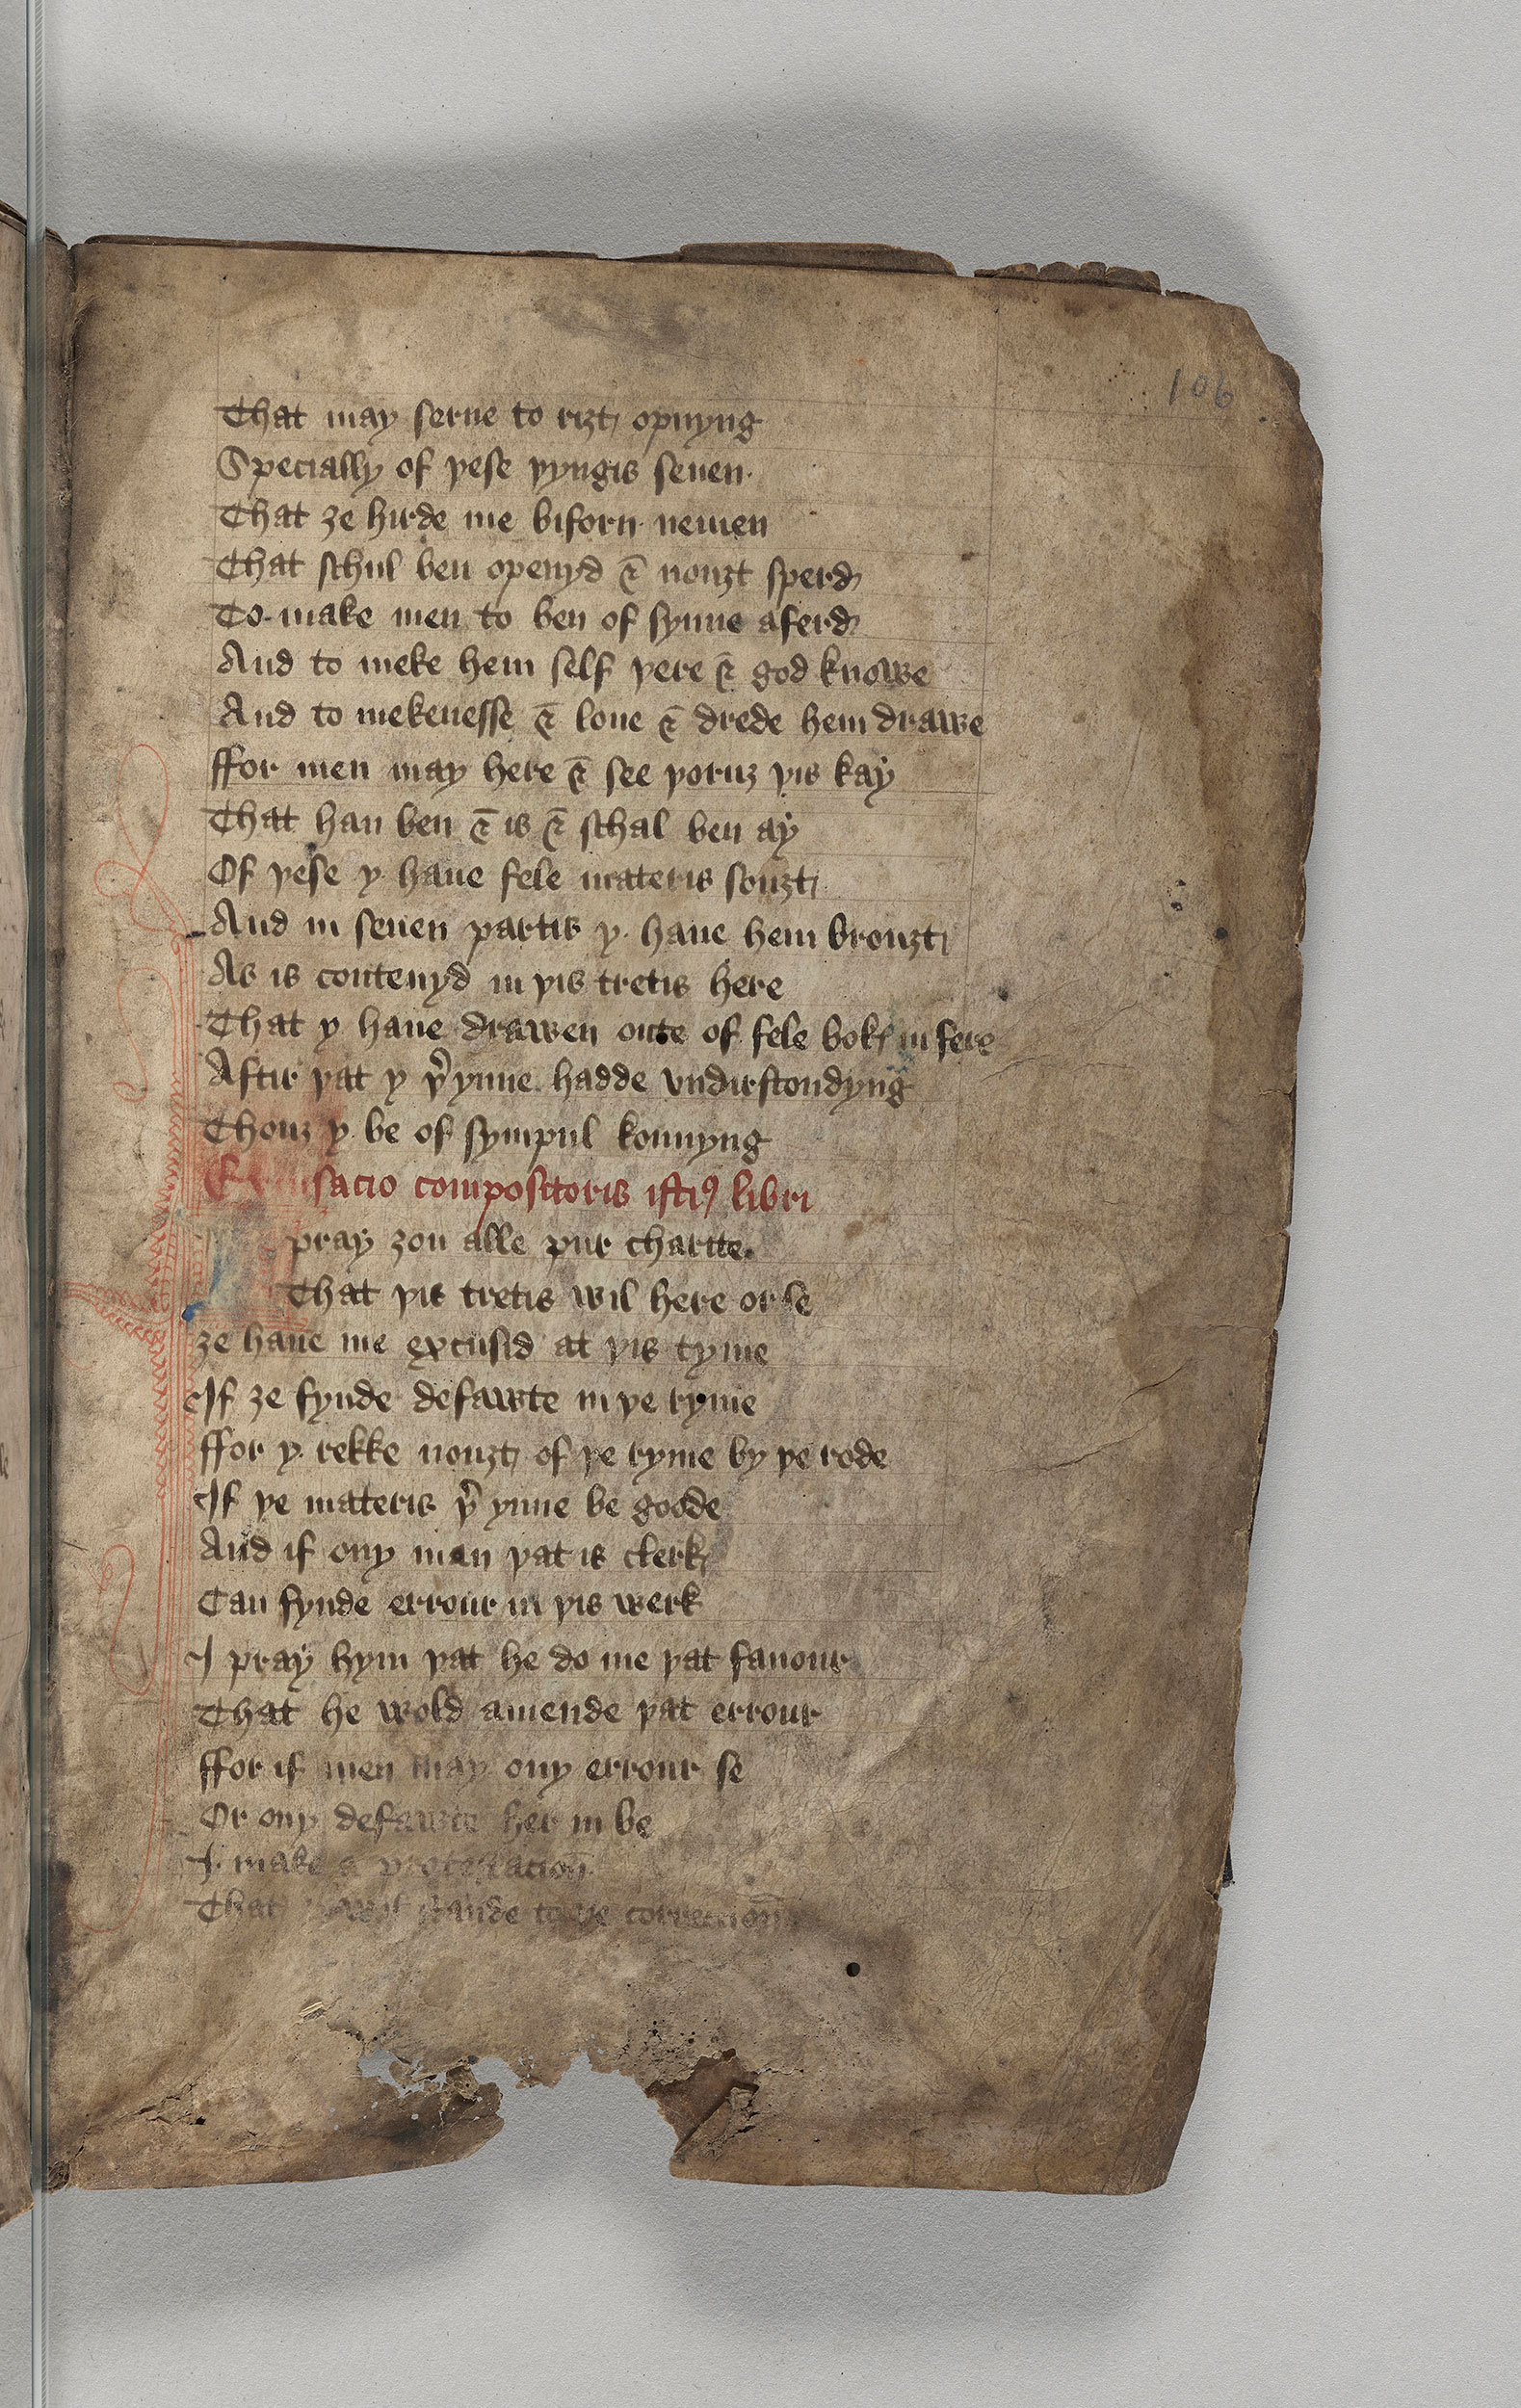 106
That may serue to rizt opnyng
Specially of yese yyngis seuen.
That ze hirde me biforn nemen
That schul ben openyd ⁊ nouzt sperd
To make men to ben of synne aferd
And to meke hem self yere ⁊ god knowe
And to mekenesse ⁊ loue ⁊ drede hem drawe
ffor men may here ⁊ see yoruz yis kay
That han ben ⁊ is ⁊ schal ben ay
Of yese y haue fele materis souzt
And in seuen partis y. haue hem brouzt
As is contenyd in yis tretis here
That y haue drawen oute of fele bokꝭ in fere
Aftir yat y yͬ ynne hadde vndirstondyng
Thouz y be of sympul konnyng
sacio compositoris istiꝰ libri
pray zou alle pur charite.
That yis tretis wil here or se
ze haue me excusid at yis tyme
If ze fynde defawte in ye ryme
ffor y. rekke nouzt of ye ryme by ye rode
If ye materis yͬ ynne be goode
And if ony man yat is clerk
Can fynde errour in yis werk
I pray hym yat he do me yat fauour
That he wold amende yat errour
ffor if men may ony errour se
Or ony defawte her in be
I. make a protestacion̄
That y wil stande to ye correccion̄